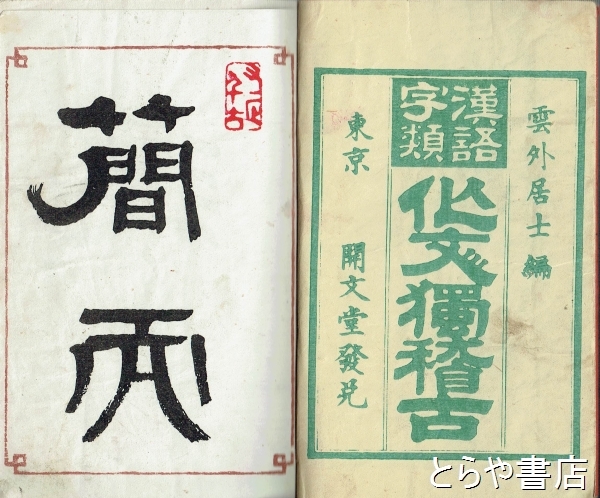 雲外居士 編
漢語
字類
作文獨稽古
東京 開文堂發兌
簡而
とらや書店